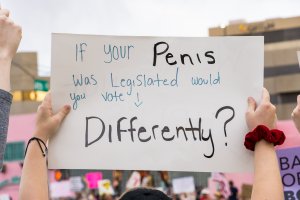 If your Penis
was Legislated would
you vote ↓
Differently?
BA